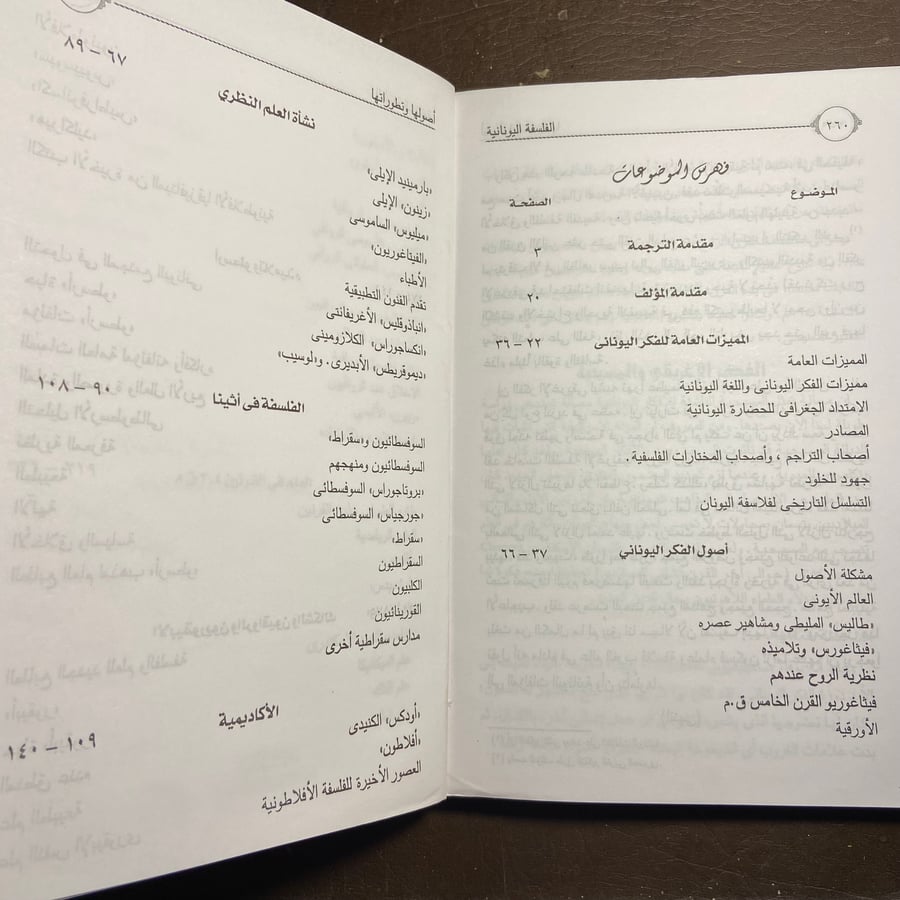 ٢٦٠
الفلسفة اليونانية
فهرس الموضوعات
الموضوع الصفحة
مقدمة الترجمة ٣
مقدمة المؤلف ٢٠
المميزات العامة للفكر اليونانى ٢٢ – ٣٦
المميزات العامة
مميزات الفكر اليونانى واللغة اليونانية
الامتداد الجغرافى للحضارة اليونانية
المصادر
أصحاب التراجم ، وأصحاب المختارات الفلسفية .
جهود للخلود
التسلسل التاريخى لفلاسفة اليونان
أصول الفكر اليونانى ٣٧ – ٦٦
مشكلة الأصول
العالم الأيونى
«طاليس» المليطى ومشاهير عصره
«فيثاغورس» وتلاميذه
نظرية الروح عندهم
فيثاغوريو القرن الخامس ق.م
الأورقية
أصولها وتطوراتها
نشأة العلم النظري ٦٧ – ٨٩
«بارمينيد الإيلى»
«زينون» الإيلى
«ميليوس» الساموسى
«الفيثاغوريون»
الأطباء
تقدم الفنون التطبيقية
«انباذوقليس» الأغريغانتى
«انكساجوراس» الكلازومينى
«ديموقريطس» الأبديرى. «ولوسيب»
الفلسفة فى أثينا ٩٠ – ١٠٨
السوفسطائيون و«سقراط»
السوفسطائيون ومنهجهم
«بروتاجوراس» السوفسطائى
«جورجياس» السوفسطائى
«سقراط»
السقراطيون
الكلبيون
القورينائيون
مدارس سقراطية أخرى
الأكاديمية ١٠٩ – ١٤٠
«أودكس» الكنيدى
«أفلاطون»
العصور الأخيرة للفلسفة الأفلاطونية